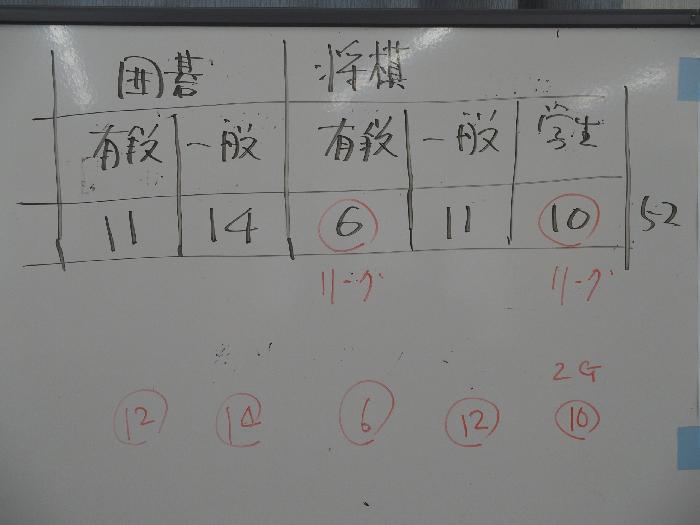 囲碁 将棋
有段 一般 有段 一般 学生
11 14 6 11 10 52
リーグ リーグ
2G
12 14 6 12 10